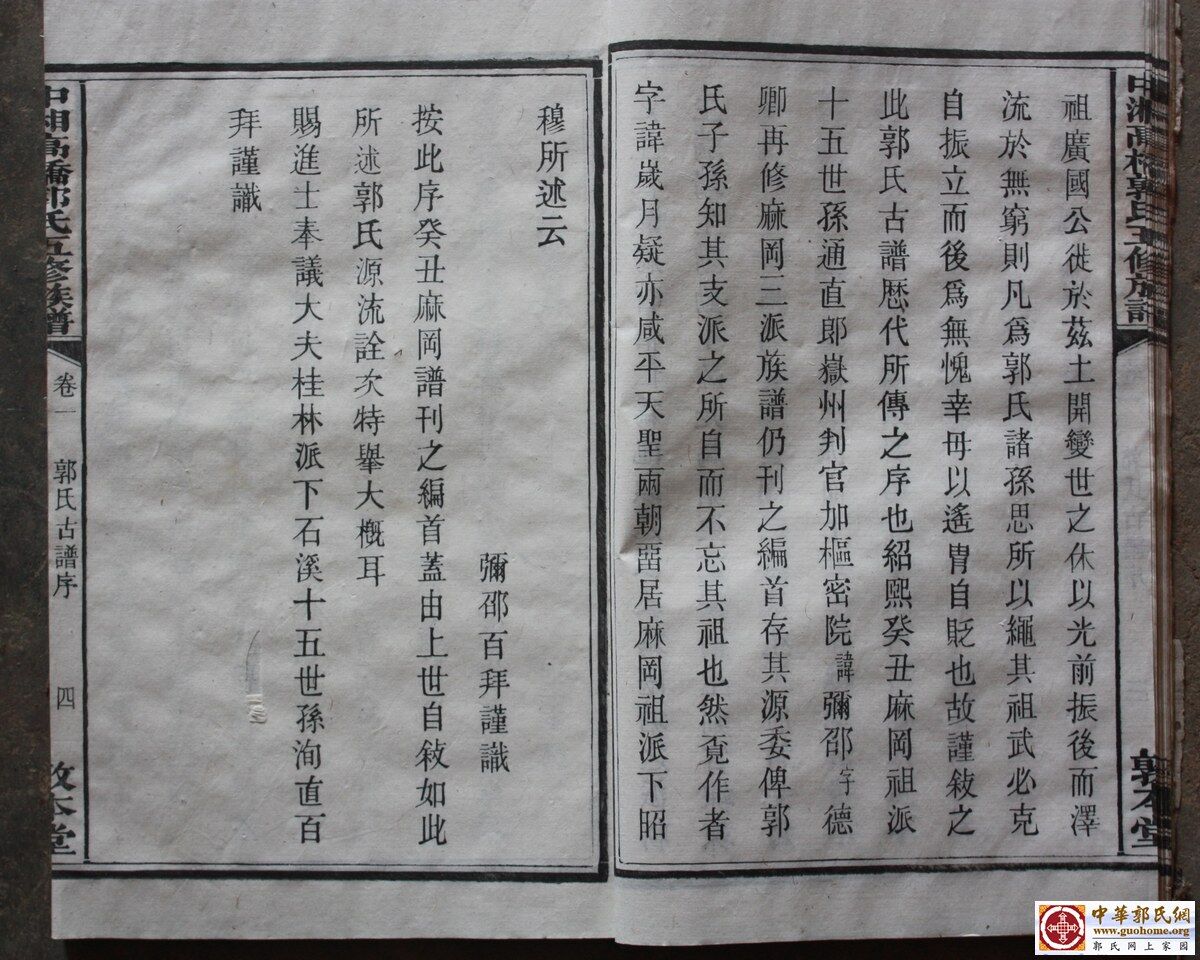 祖廣國公徙於茲土開變世之休以光前振後而澤
流於無窮則凡爲郭氏諸孫思所以繩其祖武必克
自振立而後爲無愧幸毋以遙胄自貶也故謹敍之
此郭氏古譜歷代所傳之序也紹熙癸丑麻岡祖派
十五世孫通直郎嶽州判官加樞密院諱彌邵字德
卿再修麻岡三派族譜仍刊之編首存其源委俾郭
氏子孫知其支派之所自而不忘其祖也然覔作者
字諱歲月疑亦咸平天聖兩朝畱居麻岡祖派下昭
穆所述云
彌邵百拜謹識
按此序癸丑麻岡譜刊之編首蓋由上世自敍如此
所述郭氏源流詮次特舉大概耳
賜進士奉議大夫桂林派下石溪十五世孫洵直百
拜謹識
中湘高橋郭氏五修族譜
卷一
郭氏古譜序
四
敦本堂
中華郭氏網
www.guohome.org
郭氏网上家园